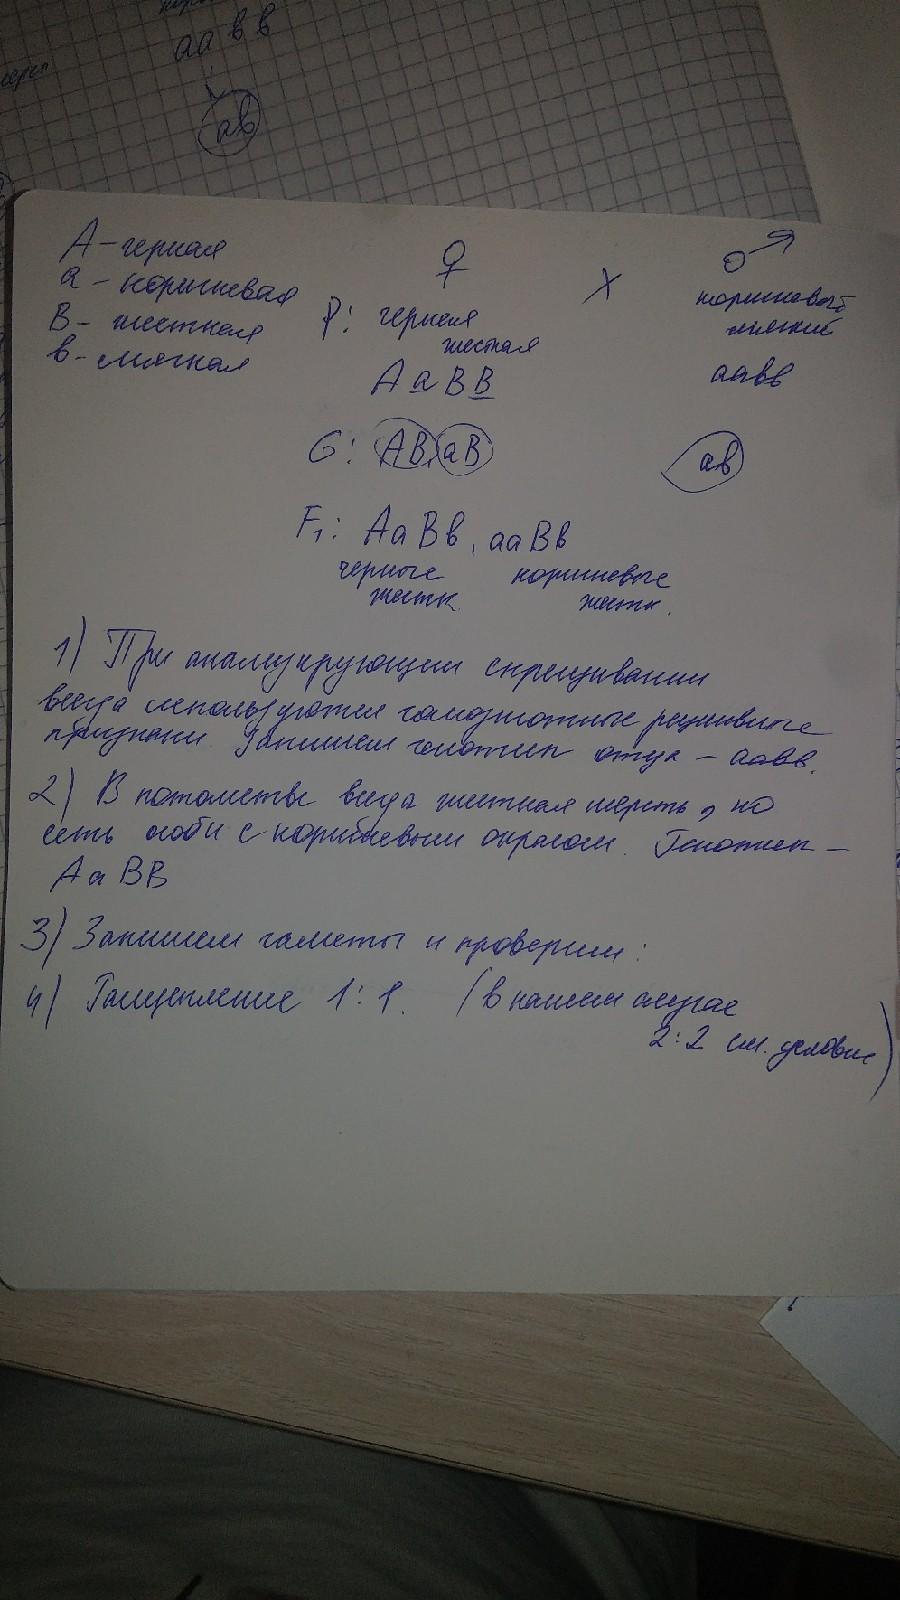 аавв
ав
А - черная
а - коричневая
В - жесткая
в - мягкая
♀ X ♂
Р: черная коричневый
жесткая мягкий
АаВВ аавв
G: АВ, аВ ав
F₁: АаВв, ааВв
черные коричневые
жестк. жестк.
1) При анализирующем скрещивании
всегда используются гомозиготные рецессивные
признаки. Запишем генотип отца - аавв.
2) В потомстве всегда жесткая шерсть, но
есть особи с коричневым окрасом. Генотип -
АаВВ
3) Запишем гаметы и проверим:
4) Расщепление 1:1. (в нашем случае
2:2 см. условие)